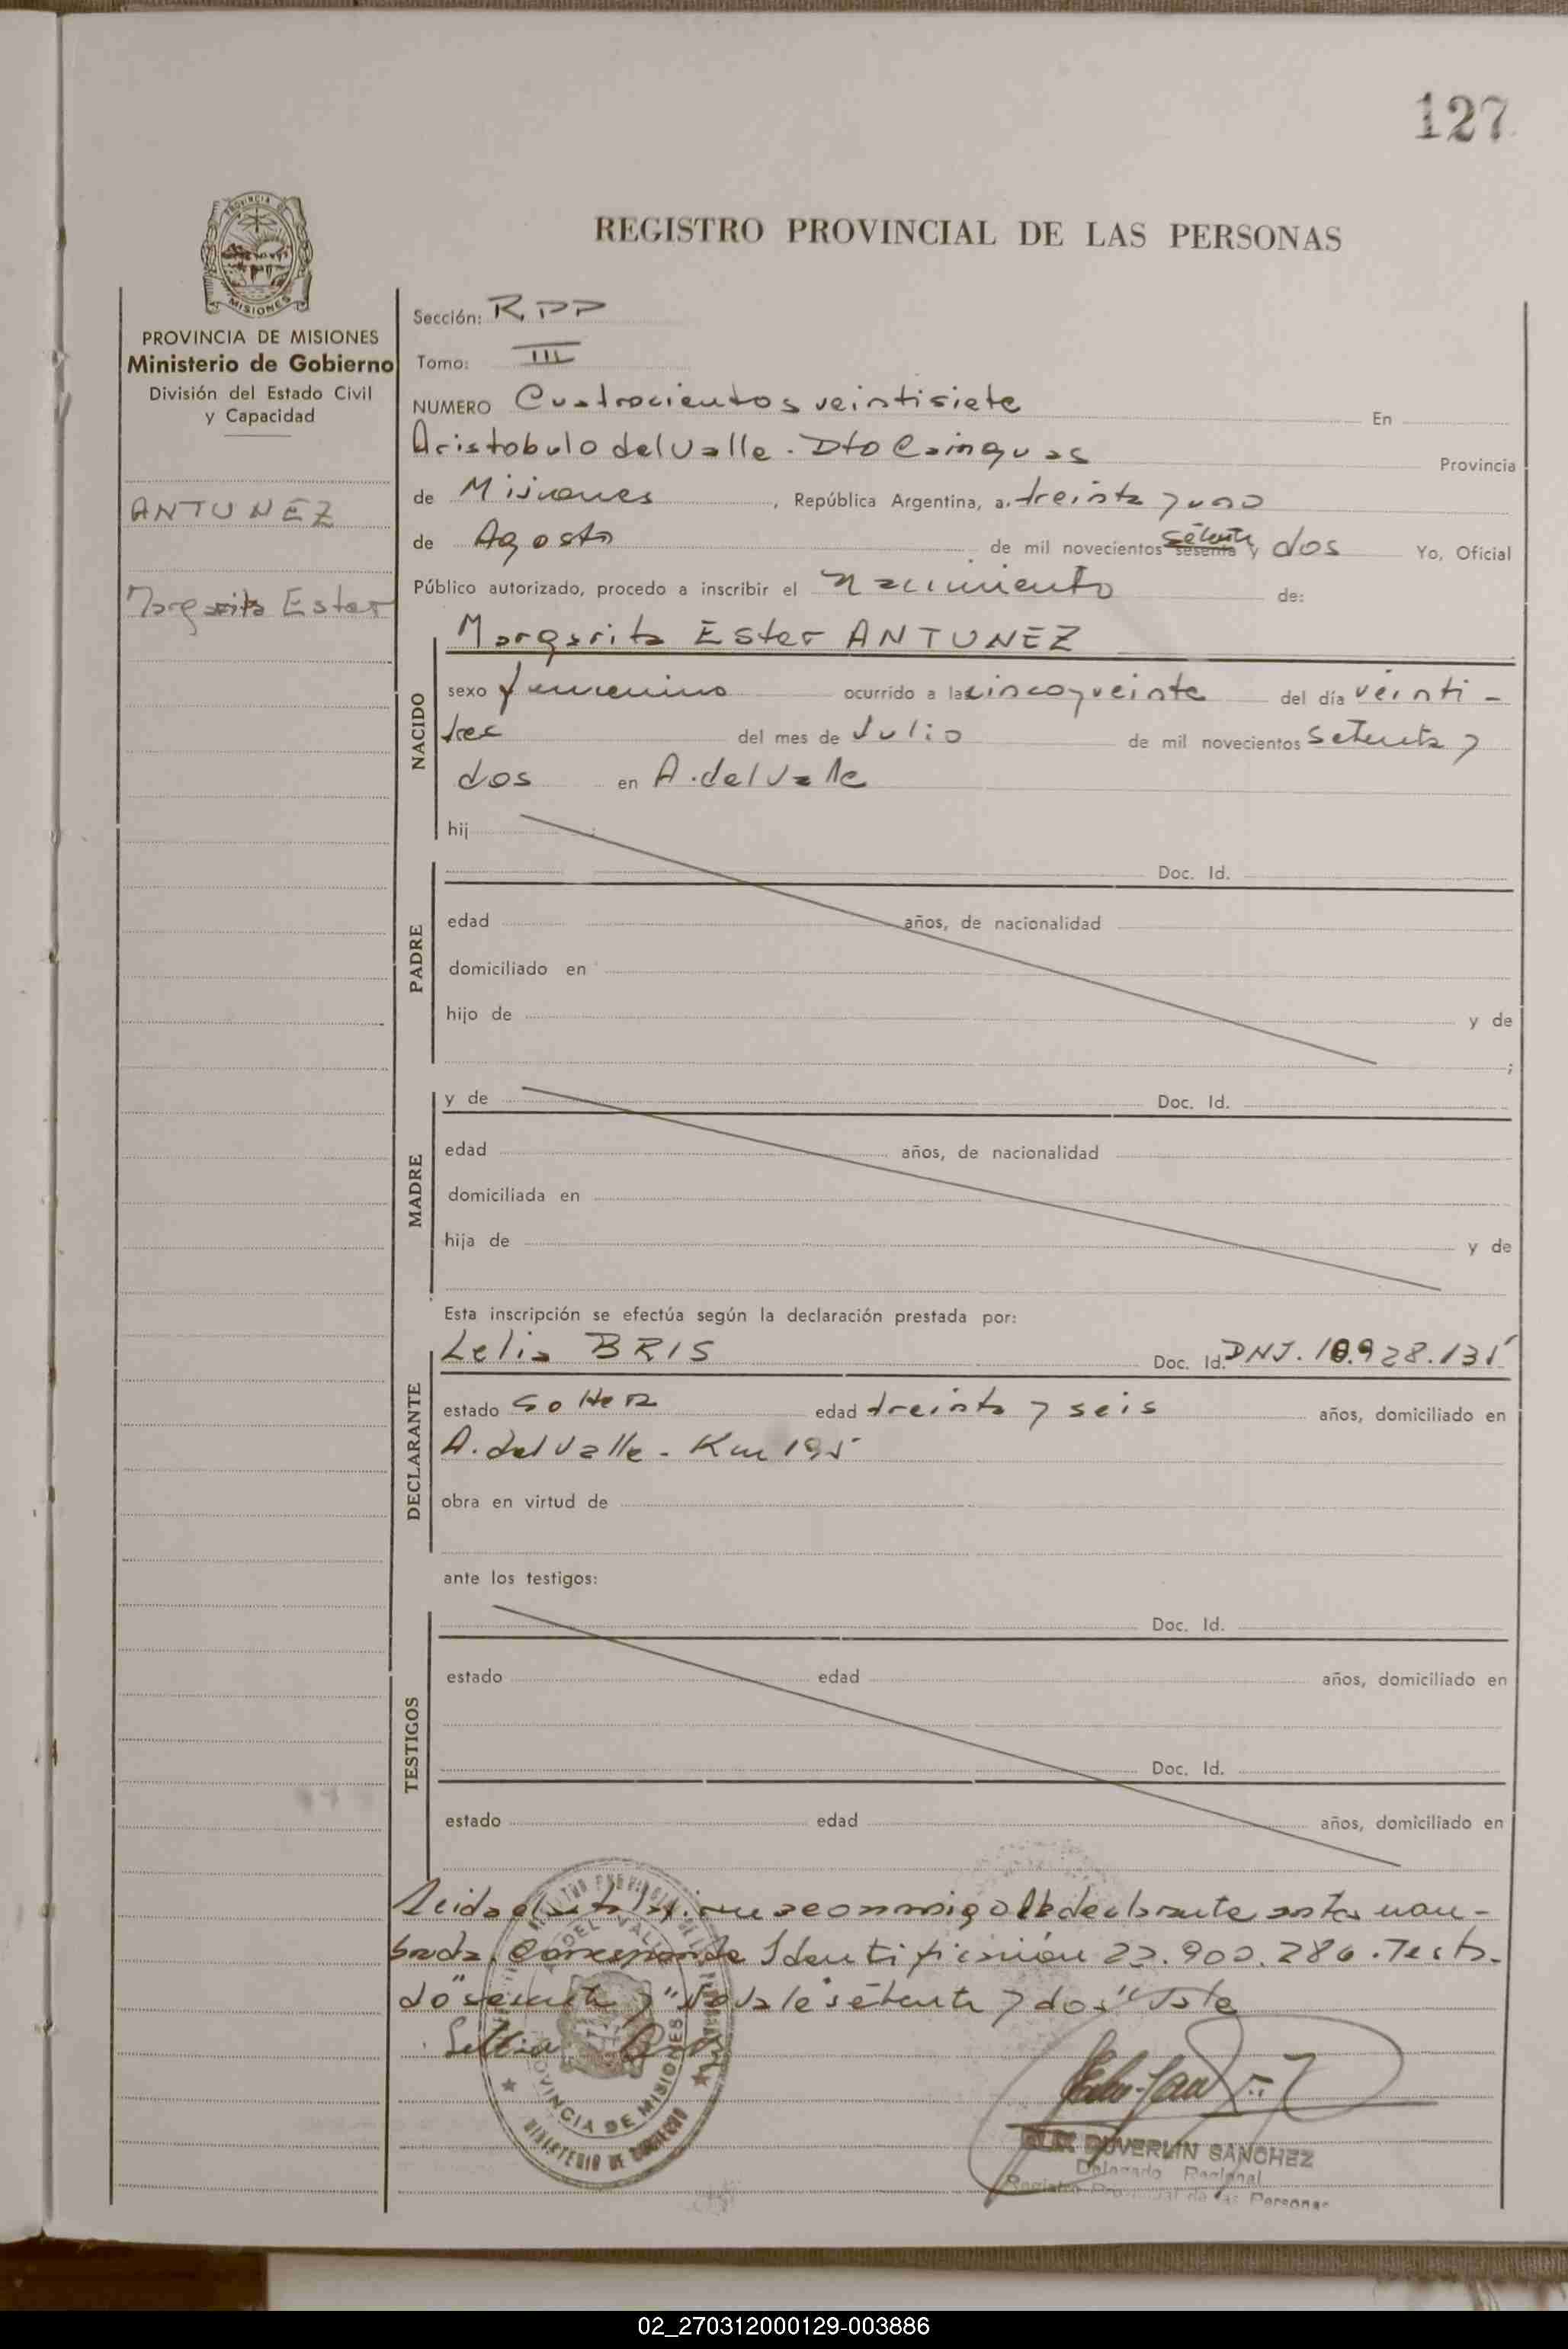 127
REGISTRO PROVINCIAL DE LAS PERSONAS
PROVINCIA DE
MISIONES
PROVINCIA DE MISIONES
Ministerio de Gobierno
División del Estado Civil
y Capacidad
ANTUNEZ
Margarita Ester
Sección: R.P.P
Tomo: III
NUMERO Cuatrocientos veintisiete En
Aristobulo del Valle - Dto Cainguas Provincia
de Misiones, República Argentina, a treinta y uno
de Agosto de mil novecientos setenta sesenta y dos Yo, Oficial
Público autorizado, procedo a inscribir el Nacimiento de:
NACIDO
Margarita Ester ANTUNEZ
sexo femenino ocurrido a las cinco y veinte del día veinti-
tres del mes de Julio de mil novecientos setenta y
dos en A. del Valle
hij
PADRE
Doc. Id.
edad años, de nacionalidad
domiciliado en
hijo de y de
;
MADRE
y de Doc. Id.
edad años, de nacionalidad
domiciliada en
hija de y de
Esta inscripción se efectúa según la declaración prestada por:
DECLARANTE
Lelia BRIS Doc. Id. DNI. 10.928.131
estado soltera edad treinta y seis años, domiciliado en
A. del Valle - Km 195
obra en virtud de
ante los testigos:
TESTIGOS
Doc. Id.
estado edad años, domiciliado en
Doc. Id.
estado edad años, domiciliado en
Leida el acta la firma conmigo la declarante antes nom-
brada. Corresponde Identificación 22.900.286. Testa-
do "sesenta y" No vale "setenta y dos" Vale
PROVINCIA DE MISIONES
MINISTERIO DE GOBIERNO
DUVERLIN SANCHEZ
Delegado Regional
Registro Provincial de las Personas
02_270312000129-003886